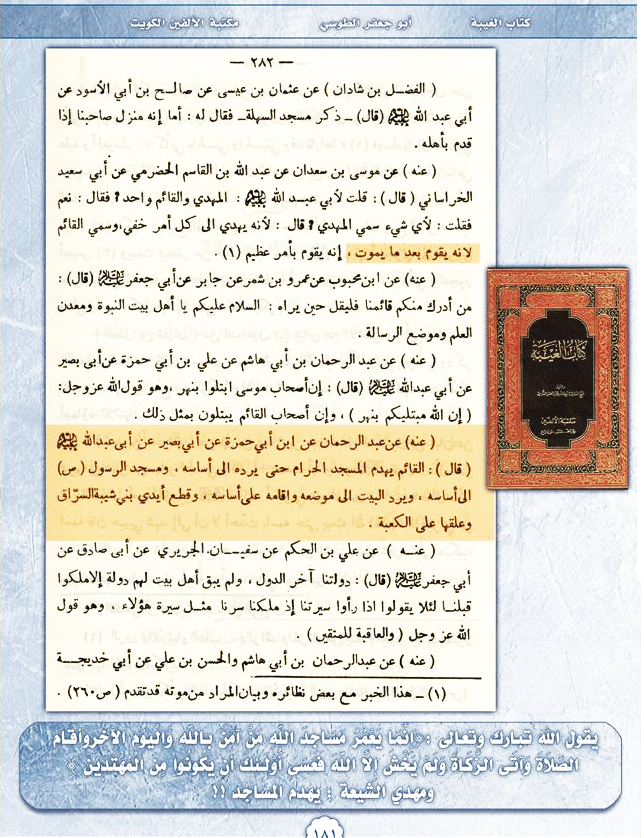 كتاب الغيبة
أبو جعفر الطوسي
مكتبة الألفين الكويت
— ٢٨٢ —
( الفضل بن شاذان ) عن عثمان بن عيسى عن صالح بن أبي الأسود عن
أبي عبد الله عليه السلام (قال) ـ ذكر مسجد السهلة ـ فقال له : أما إنه منزل صاحبنا إذا
قدم بأهله .
( عنه ) عن موسى بن سعدان عن عبد الله بن القاسم الحضرمي عن أبي سعيد
الخراساني ( قال ) : قلت لأبي عبد الله عليه السلام : المهدي والقائم واحد ؟ فقال : نعم
فقلت : لأي شيء سمي المهدي ؟ قال : لأنه يهدي الى كل أمر خفي ، وسمي القائم
لانه يقوم بعد ما يموت ، إنه يقوم بأمر عظيم (١) .
(عنه) عن ابن محبوب عن عمرو بن شمر عن جابر عن أبي جعفر عليه السلام (قال) :
من أدرك منكم قائمنا فليقل حين يراه : السلام عليكم يا أهل بيت النبوة ومعدن
العلم وموضع الرسالة .
( عنه ) عن عبد الرحمان بن أبي هاشم عن علي بن أبي حمزة عن أبي بصير
عن أبي عبدالله عليه السلام (قال) : إن أصحاب موسى ابتلوا بنهر ، وهو قول الله عز وجل:
( إن الله مبتليكم بنهر ) ، وإن أصحاب القائم يبتلون بمثل ذلك .
( عنه) عن عبد الرحمان عن ابن أبي حمزة عن أبي بصير عن أبي عبدالله عليه السلام
( قال ) : القائم يهدم المسجد الحرام حتى يرده الى أساسه ، ومسجد الرسول (ص)
الى أساسه ، ويرد البيت الى موضعه واقامه على أساسه ، وقطع أيدي بني شيبة السرّاق
وعلقها على الكعبة .
( عنه ) عن علي بن الحكم عن سفيان الجريري عن أبى صادق عن
أبي جعفر عليه السلام (قال) : دولتنا آخر الدول ، ولم يبق أهل بيت لهم دولة إلا ملكوا
قبلنا لئلا يقولوا اذا رأوا سيرتنا إذ ملكنا سرنا مثل سيرة هؤلاء ، وهو قول
الله عز وجل ( والعاقبة للمتقين ) .
( عنه ) عن عبدالرحمان بن أبي هاشم والحسن بن علي عن أبي خديجة
(١) ـ هذا الخبر مع بعض نظائره وبيان المراد من موته قد تقدم ( ص ٢٦٠ ) .
كتاب الغيبة
مكتبة الألفين
يقول الله تبارك وتعالى : ﴿إنما يعمر مساجد الله من آمن بالله واليوم الآخر وأقام
الصلاة وآتى الزكاة ولم يخش إلا الله فعسى أولئك أن يكونوا من المهتدين ﴾
ومهدي الشيعة : يهدم المساجد !!
١٨١